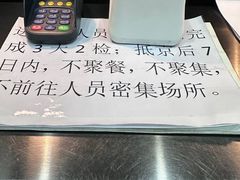 进京人员 完
成3天2检；抵京后7
日内，不聚餐，不聚集，
不前往人员密集场所。